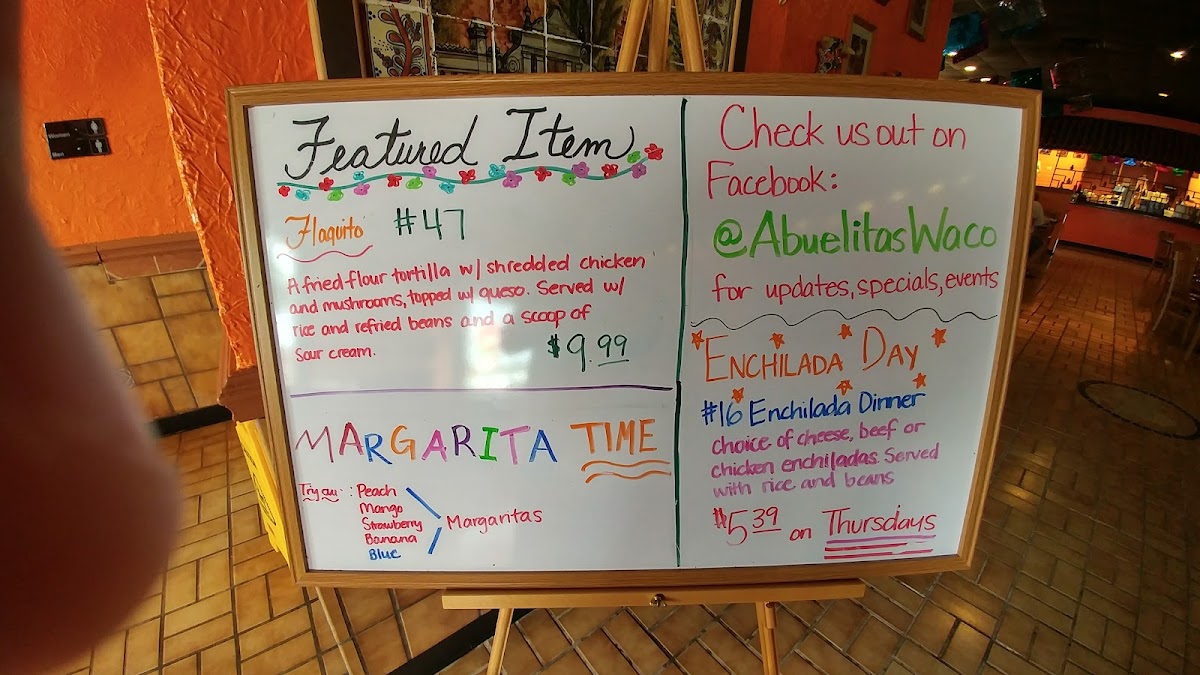 Women
Men
Featured Item
Flaquito #47
A fried flour tortilla w/ shredded chicken
and mushrooms, topped w/ queso. Served w/
rice and refried beans and a scoop of
sour cream. $9.99
MARGARITA TIME
Try our: Peach
Mango
Strawberry
Banana
Blue
Margaritas
Check us out on
Facebook:
@AbuelitasWaco
for updates, specials, events
ENCHILADA DAY
#16 Enchilada Dinner
choice of cheese, beef or
chicken enchiladas. Served
with rice and beans
$5.39 on Thursdays